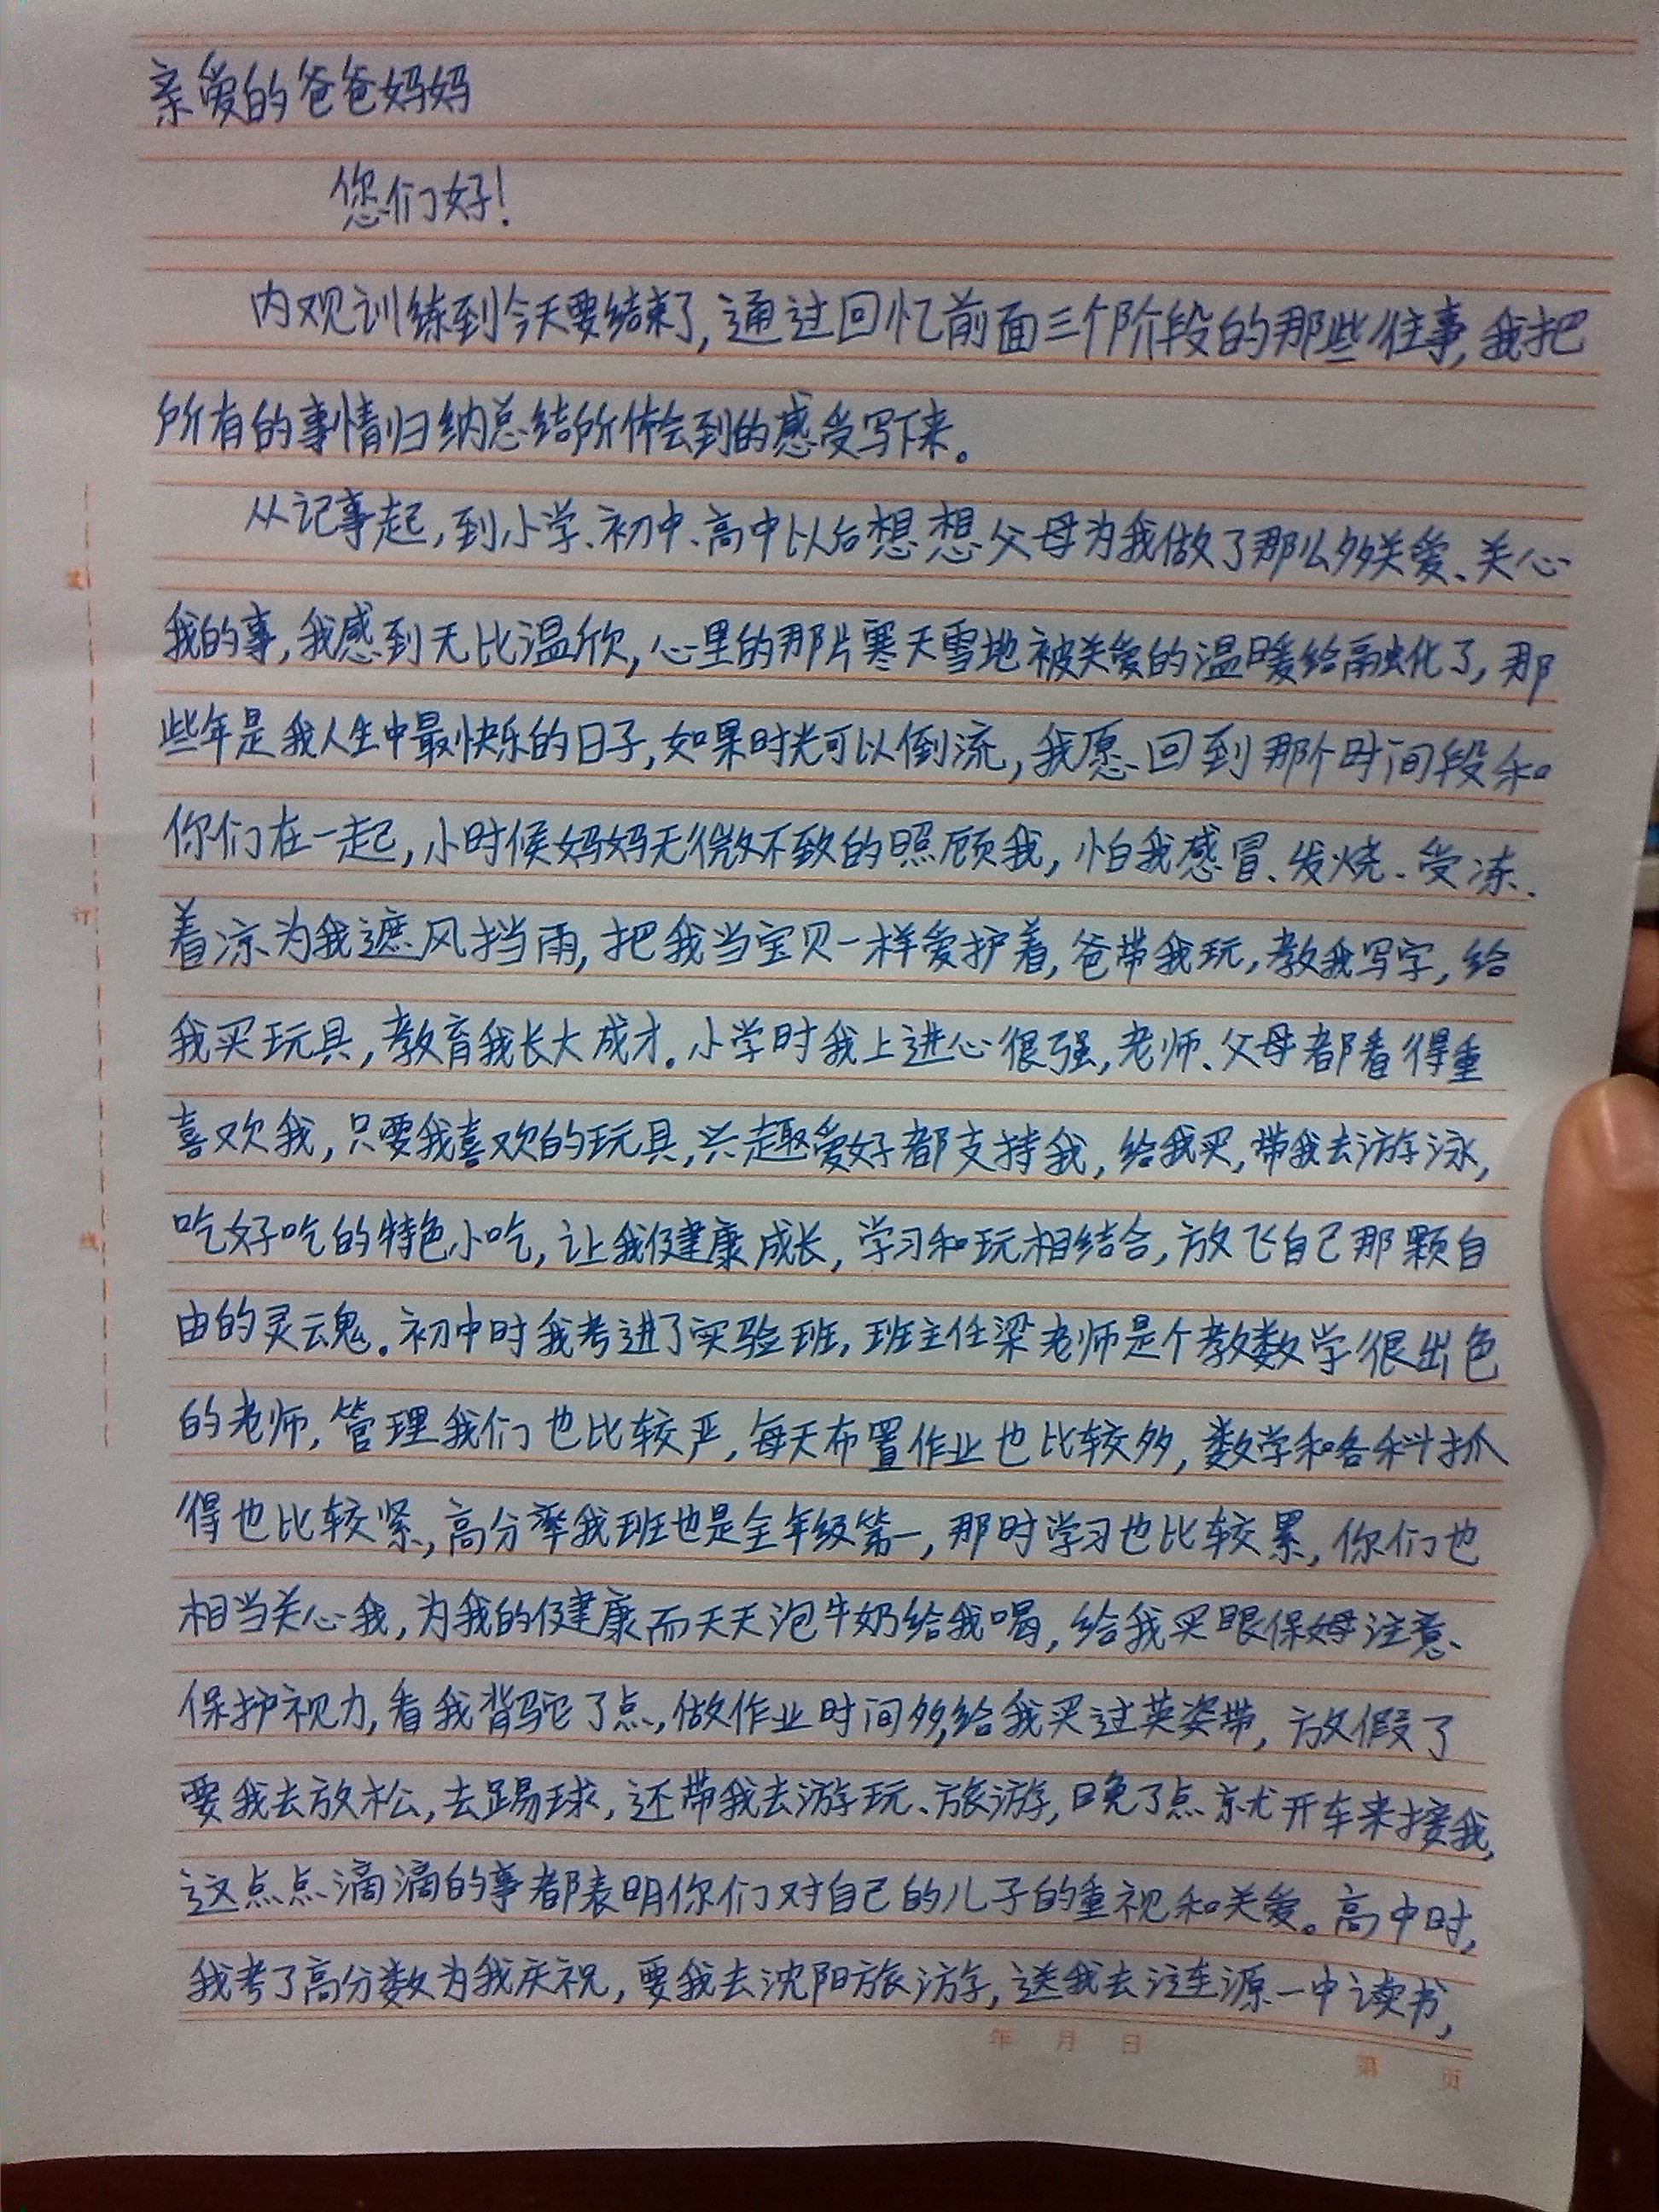 亲爱的爸爸妈妈
您们好！
内观训练到今天要结束了，通过回忆前面三个阶段的那些往事，我把
所有的事情归纳总结所体会到的感受写下来。
从记事起，到小学、初中、高中以后想想父母为我做了那么多关爱、关心
我的事，我感到无比温欣，心里的那片寒天雪地被关爱的温暖给融化了，那
些年是我人生中最快乐的日子，如果时光可以倒流，我愿回到那个时间段和
你们在一起，小时候妈妈无微不致的照顾我，怕我感冒、发烧、受冻、
着凉为我遮风挡雨，把我当宝贝一样爱护着，爸带我玩，教我写字，给
我买玩具，教育我长大成才。小学时我上进心很强，老师、父母都看得重
喜欢我，只要我喜欢的玩具，兴趣爱好都支持我，给我买，带我去游泳，
吃好吃的特色小吃，让我健康成长，学习和玩相结合，放飞自己那颗自
由的灵魂。初中时我考进了实验班，班主任梁老师是个教数学很出色
的老师，管理我们也比较严，每天布置作业也比较多，数学和各科抓
得也比较紧，高分率我班也是全年级第一，那时学习也比较累，你们也
相当关心我，为我的健康而天天泡牛奶给我喝，给我买眼保姆注意、
保护视力，看我背驼了点，做作业时间多，给我买过英姿带，放假了
要我去放松，去踢球，还带我去游玩、旅游，晚了点就开车来接我，
这点点滴滴的事都表明你们对自己的儿子的重视和关爱。高中时，
我考了高分数为我庆祝，要我去沈阳旅游，送我去涟源一中读书，
年 月 日
第 页
装
订
线